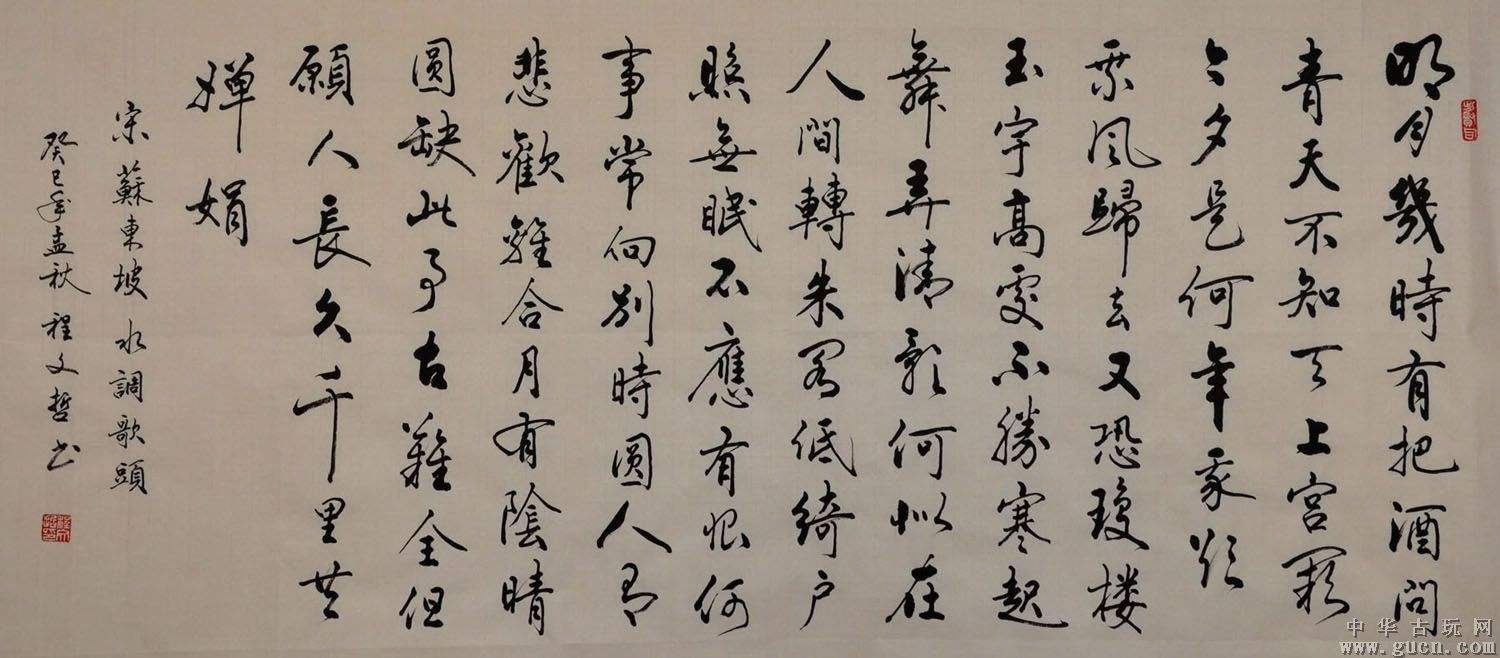 明月幾時有把酒問
青天不知天上宫闕
今夕是何年我欲
乘風歸去又恐瓊楼
玉宇高處不勝寒起
舞弄清影何似在
人間轉朱阁低綺户
照無眠不應有恨何
事常向别時圓人有
悲歡離合月有陰晴
圓缺此事古難全但
願人長久千里共
嬋娟
宋蘇東坡水調歌頭
癸巳年孟秋程文哲书
中华古玩网
www.gucn.com